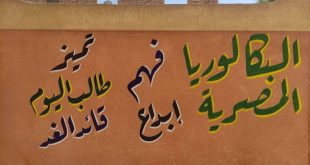 البكالوريا
المصرية
فهم
إبداع
تميز
طالب اليوم
قائد الغد